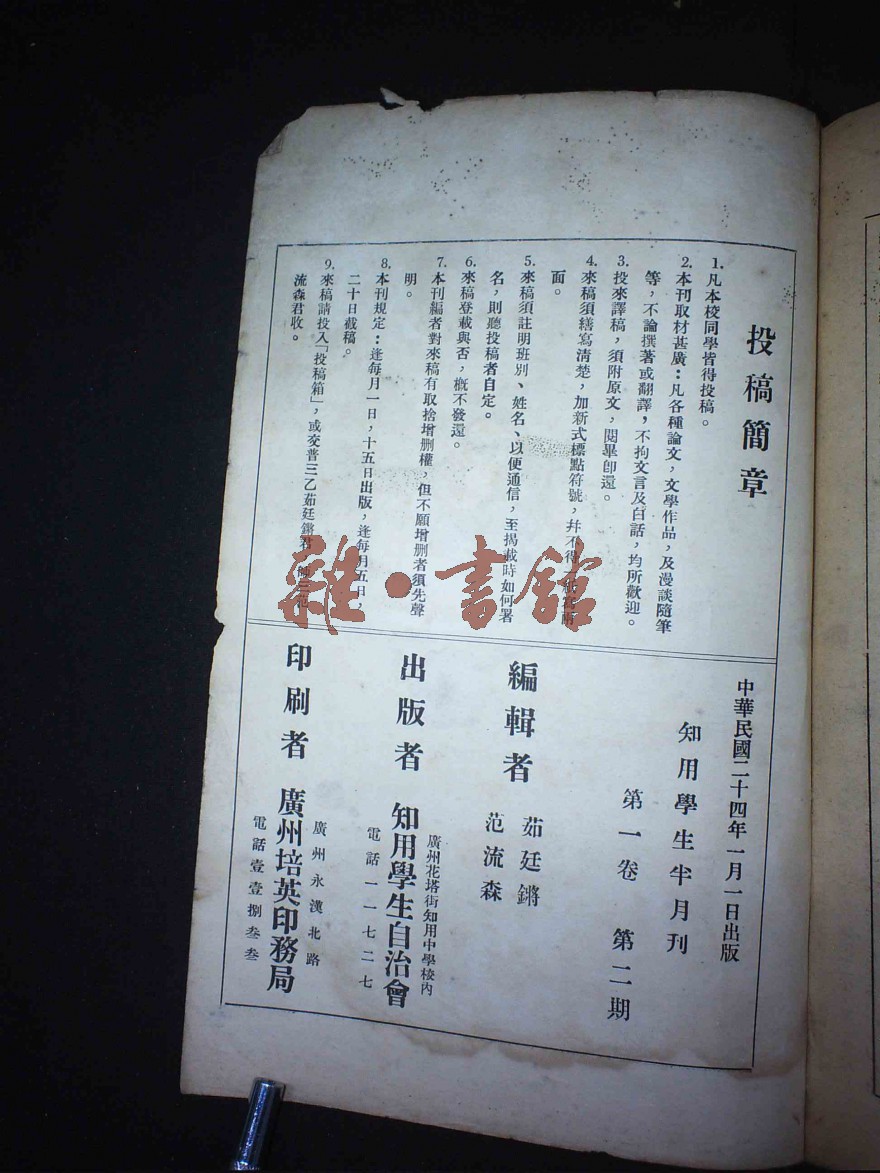 投稿簡章
1.凡本校同學皆得投稿。
2.本刊取材甚廣：凡各種論文，文學作品，及漫談隨筆
等，不論撰著或翻譯，不拘文言及白話，均所歡迎。
3.投來譯稿，須附原文，閱畢卽還。
4.來稿須繕寫清楚，加新式標點符號，幷不得
面。
5.來稿須註明班別、姓名、以便通信，至揭載時如何署
名，則聽投稿者自定。
6.來稿登載與否，槪不發還。
7.本刊編者對來稿有取捨增删權，但不願增删者須先聲
明。
8.本刊規定：逢每月一日，十五日出版，逢每月五日，
二十日截稿。
9.來稿請投入「投稿箱」，或交普三乙茹廷鏘君
流森君收。
中華民國二十四年一月一日出版
知用學生半月刊
第一卷 第二期
編輯者 茹廷鏘
范流森
廣州花塔街知用中學校內
出版者 知用學生自治會
電話一一七二七
廣州永漢北路
印刷者 廣州培英印務局
電話壹壹捌叁叁
雜·書館